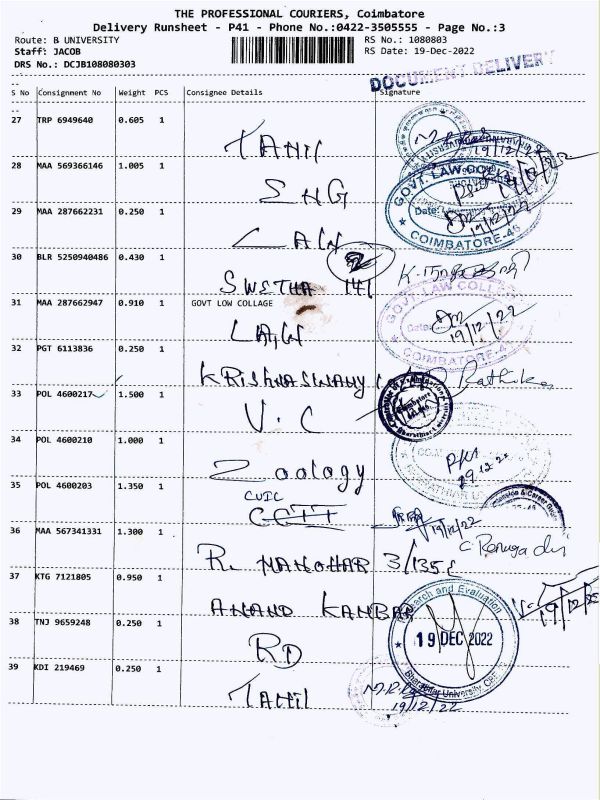 THE PROFESSIONAL COURIERS, Coimbatore
Delivery Runsheet - P41 - Phone No.:0422-3505555 - Page No.:3
Route: B UNIVERSITY RS No.: 1080803
Staff: JACOB RS Date: 19-Dec-2022
DRS No.: DCJB108080303
DOCUMENT DELIVERY
S No Consignment No Weight PCS Consignee Details Signature
27 TRP 6949640 0.605 1
TAMIL
19/12/22
28 MAA 569366146 1.005 1
ENG
GOVT. LAW COLLEGE
29 MAA 287662231 0.250 1
LAW
Date: 19/12/22
COIMBATORE-46
30 BLR 5250940486 0.430 1
SWSTHA 141
31 MAA 287662947 0.910 1 GOVT LOW COLLAGE
LAW
GOVT. LAW COLLEGE
Date: 19/12/22
COIMBATORE-46
32 PGT 6113836 0.250 1
KRISHNASWAMY
33 POL 4600217 1.500 1
V.C
34 POL 4600210 1.000 1
Zoology
35 POL 4600203 1.350 1
CUIC
19/12/22
36 MAA 567341331 1.300 1
R. MANOHAR 3/135
C Renuga devi
37 KTG 7121805 0.950 1
ANAND KANBAR
19/12/22
38 TNJ 9659248 0.250 1
RD
Research and Evaluation
19 DEC 2022
Bharathiar University, CBE
39 KDI 219469 0.250 1
TAMIL
19/12/22